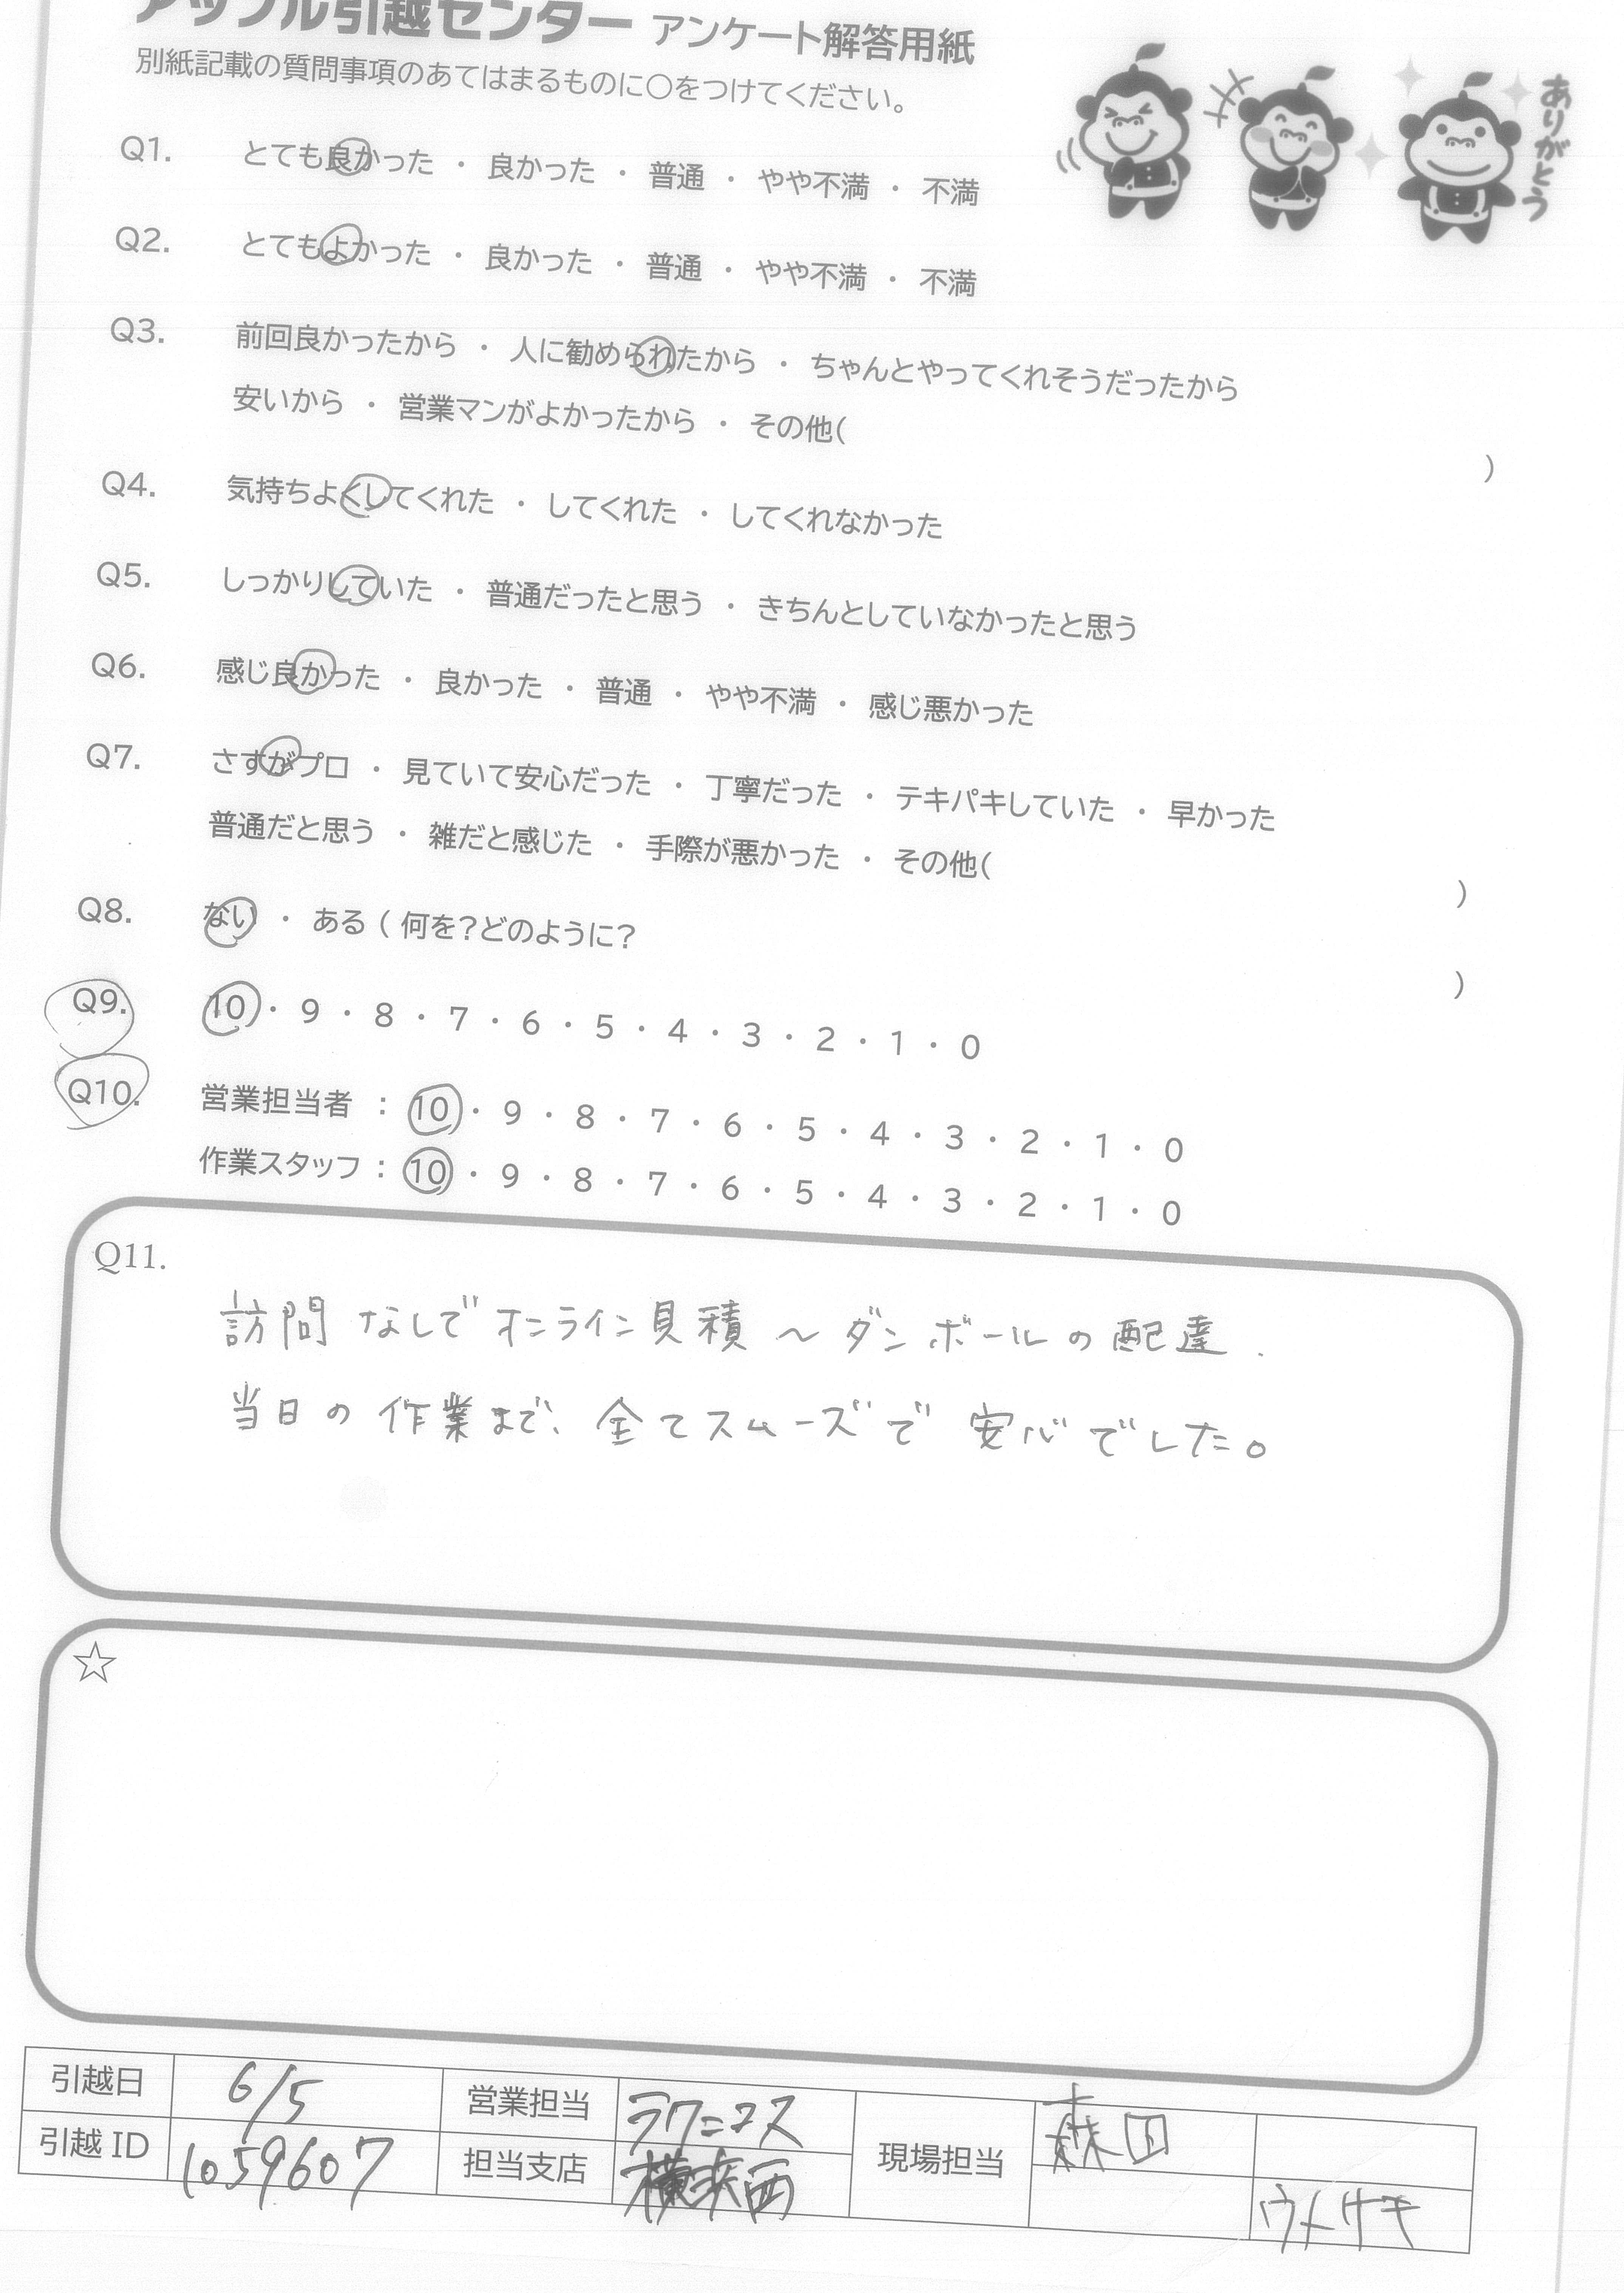 アップル引越センター アンケート解答用紙
別紙記載の質問事項のあてはまるものに〇をつけてください。
ありがとう
Q1. とても良かった ・ 良かった ・ 普通 ・ やや不満 ・ 不満
Q2. とてもよかった ・ 良かった ・ 普通 ・ やや不満 ・ 不満
Q3. 前回良かったから ・ 人に勧められたから ・ ちゃんとやってくれそうだったから
安いから ・ 営業マンがよかったから ・ その他( )
Q4. 気持ちよくしてくれた ・ してくれた ・ してくれなかった
Q5. しっかりしていた ・ 普通だったと思う ・ きちんとしていなかったと思う
Q6. 感じ良かった ・ 良かった ・ 普通 ・ やや不満 ・ 感じ悪かった
Q7. さすがプロ ・ 見ていて安心だった ・ 丁寧だった ・ テキパキしていた ・ 早かった
普通だと思う ・ 雑だと感じた ・ 手際が悪かった ・ その他( )
Q8. ない ・ ある ( 何を?どのように? )
Q9. 10 ・ 9 ・ 8 ・ 7 ・ 6 ・ 5 ・ 4 ・ 3 ・ 2 ・ 1 ・ 0
Q10. 営業担当者 : 10 ・ 9 ・ 8 ・ 7 ・ 6 ・ 5 ・ 4 ・ 3 ・ 2 ・ 1 ・ 0
作業スタッフ : 10 ・ 9 ・ 8 ・ 7 ・ 6 ・ 5 ・ 4 ・ 3 ・ 2 ・ 1 ・ 0
Q11.
訪問なしでオンライン見積〜ダンボールの配達、
当日の作業まで、全てスムーズで安心でした。
☆
引越日 6/5 営業担当 現場担当 森田
引越ID 1059607 担当支店 横浜西 ウメサキ